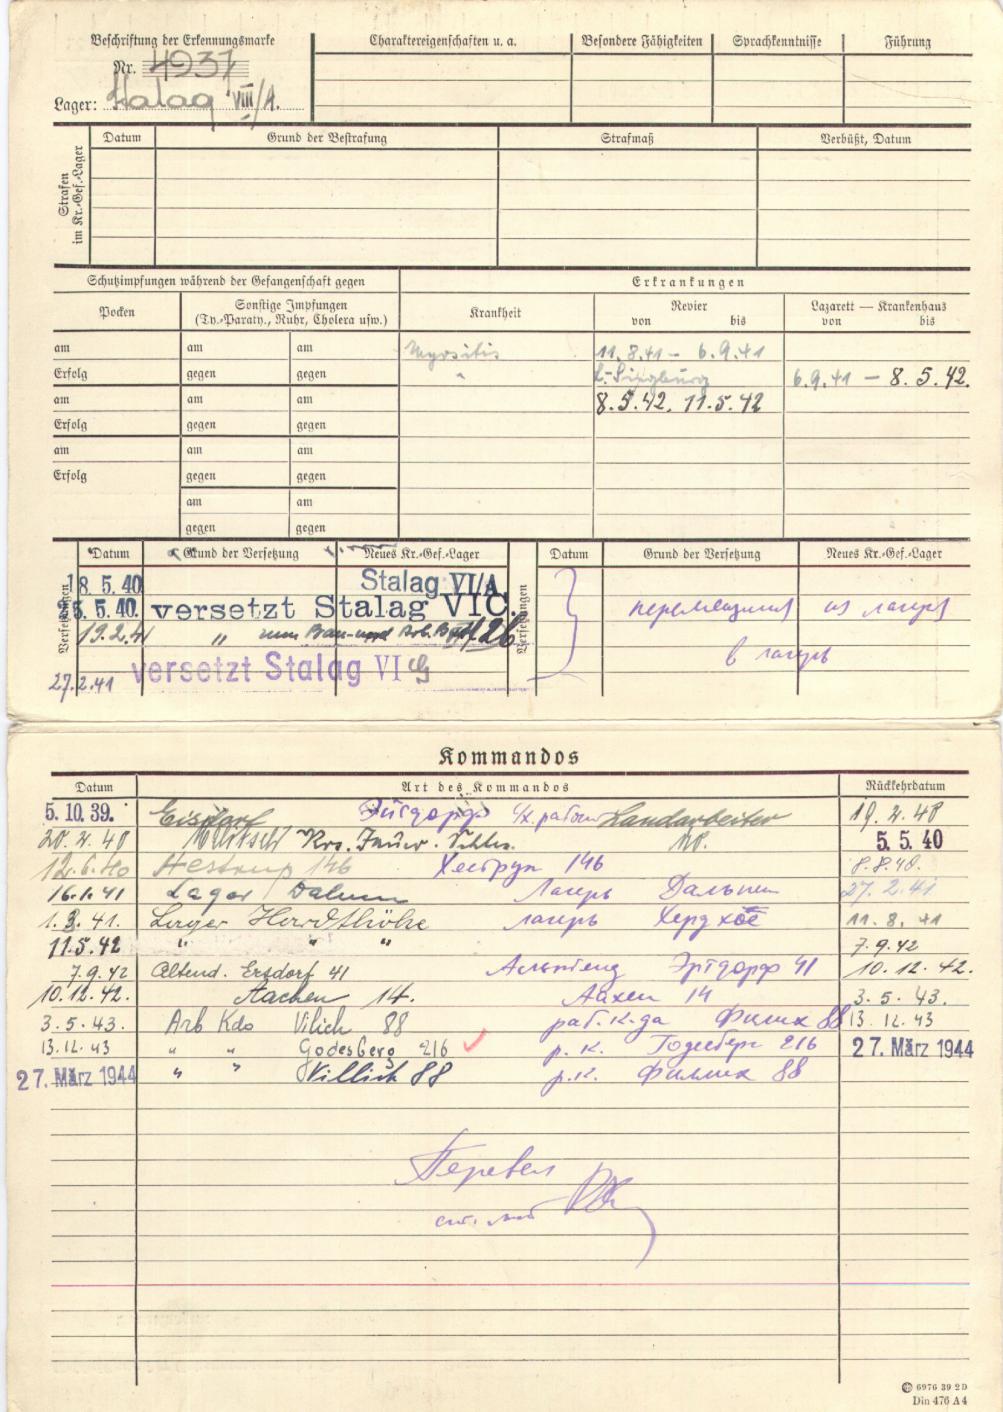 Beschriftung der Erkennungsmarke
Nr. 4937
Lager: Stalag VIII/A.
Charaktereigenschaften u. a.
Besondere Fähigkeiten
Sprachkenntnisse
Führung
Strafen im Kr.-Gef.-Lager
Datum Grund der Bestrafung Strafmaß Verbüßt, Datum
Schutzimpfungen während der Gefangenschaft gegen
Erkrankungen
Pocken
Sonstige Impfungen
(Ty.-Paraty., Ruhr, Cholera usw.)
Krankheit
Revier
von bis
Lazarett — Krankenhaus
von bis
am am am Myositis 11.8.41 – 6.9.41
Erfolg gegen gegen " L.-Siegburg 6.9.41 — 8.5.42.
am am am 8.5.42. 11.5.42
Erfolg gegen gegen
am am am
Erfolg gegen gegen
am am
gegen gegen
Versetzungen
Datum Grund der Versetzung Neues Kr.-Gef.-Lager
18.5.40 Stalag VI/A
25.5.40. versetzt Stalag VI C.
19.2.41 " zum Bau-und Arb. Batl. 26
27.2.41 versetzt Stalag VI G
Versetzungen
Datum Grund der Versetzung Neues Kr.-Gef.-Lager
перемещения из лагеря
в лагерь
Kommandos
Datum Art des Kommandos Rückkehrdatum
5.10.39. Eisdorf с/х. работы Landarbeiter 19.4.40
20.4.40 Krs. Jauer. Schles. 5.5.40
12.6.40 Hestrup 146 Хеструп 146 8.8.40.
16.1.41 Lager Dalum Лагерь Дальum 27.2.41
1.3.41. Lager Herdthöhe лагерь Хердхое 11.8.41
11.5.42 " " " 7.9.42
7.9.42 Altend. Ersdorf 41 Альтенд Эрсдорф 41 10.12.42.
10.12.42. Aachen 14. Аахен 14 3.5.43.
3.5.43. Arb Kdo Vilich 88 раб. к-да Филих 88 13.12.43
13.12.43 " " Godesberg 216 р. к. Годесберг 216 27. März 1944
27. März 1944 " " Villich 88 р.к. Филих 88
Перевел
6976 39 2D
Din 476 A4